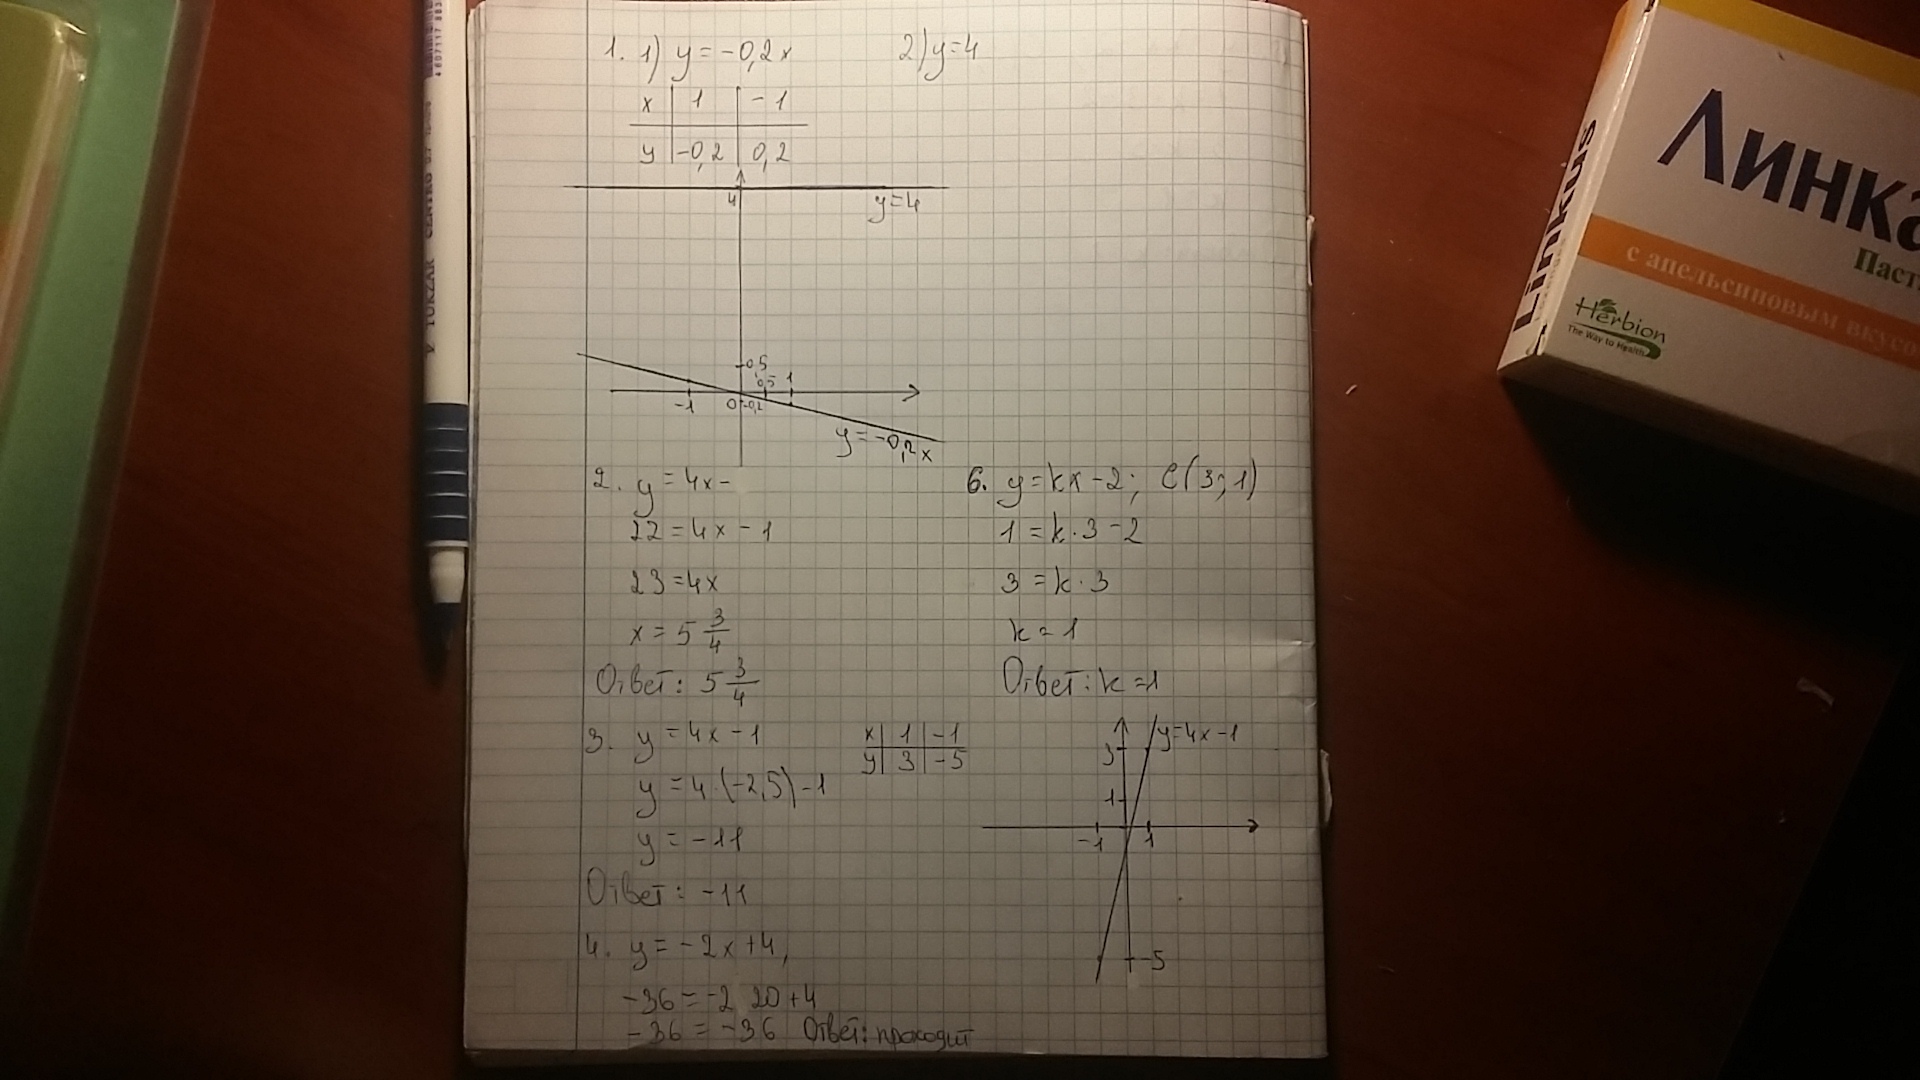 1. 1) y = -0,2x 2) y=4
x | 1 | -1
y | -0,2 | 0,2
4 y=4
0,5
0,5 1
-1 0 -0,2
y = -0,2x
2. y = 4x-
22 = 4x - 1
23 = 4x
x = 5 3/4
Ответ: 5 3/4
6. y = kx - 2; C(3;1)
1 = k·3 - 2
3 = k·3
k = 1
Ответ: k = 1
3. y = 4x - 1
y = 4·(-2,5) - 1
y = -11
Ответ: -11
x | 1 | -1
y | 3 | -5
y=4x-1
3
1
-1 1
-5
4. y = -2x + 4,
-36 = -2 20 + 4
-36 = -36 Ответ: проходит
Линка
Linkus
Паст
с апельсиновым вкусо
Herbion
The Way to Health
CENTRO